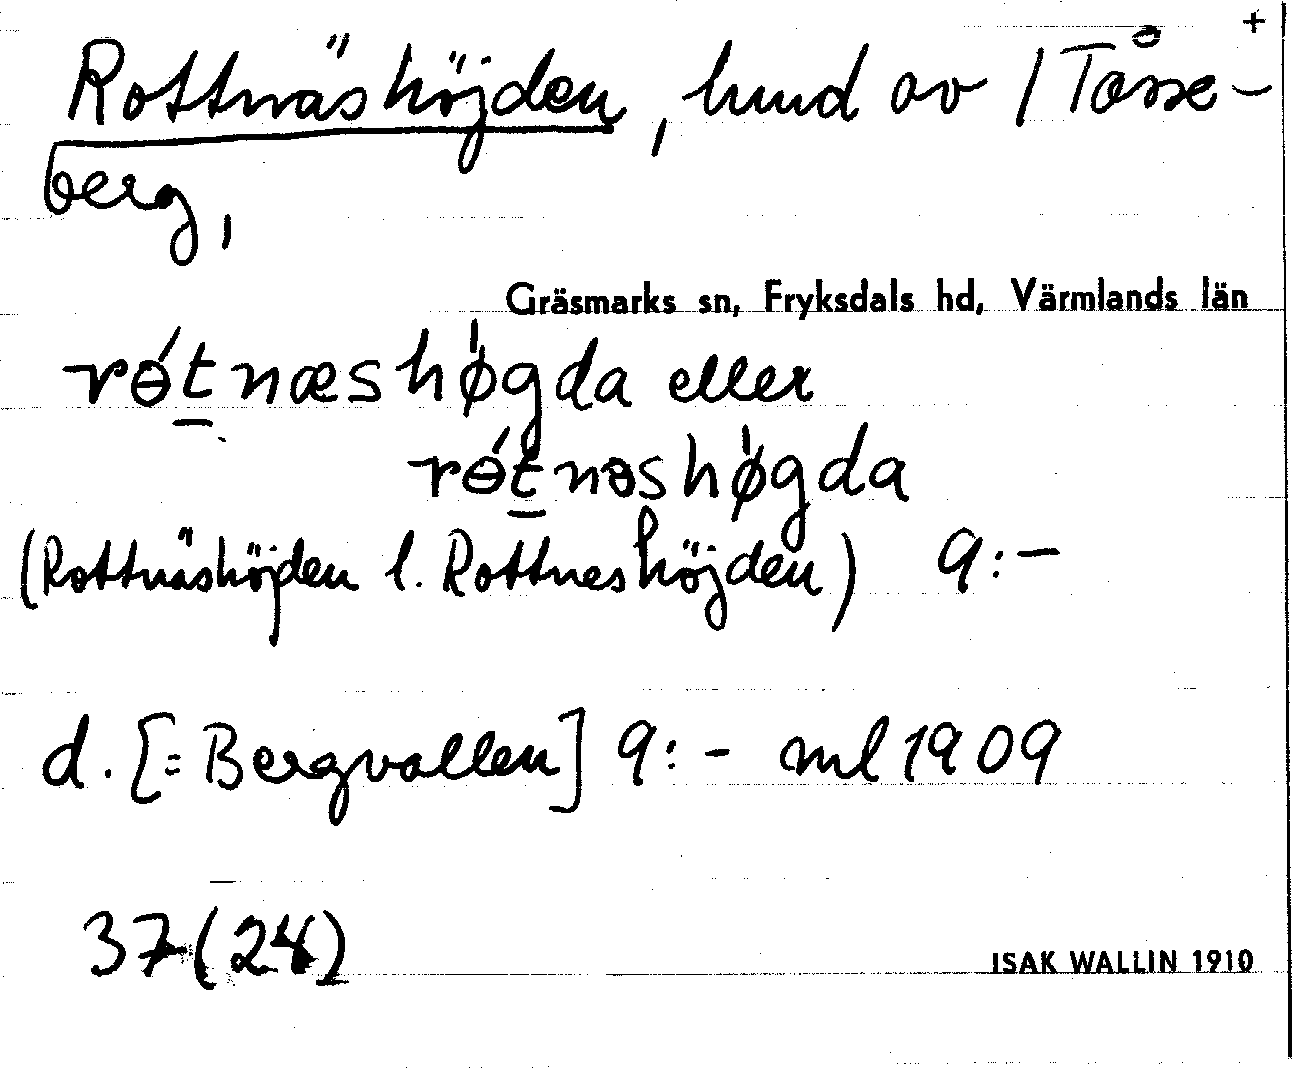 +
Rottnäshöjden, hmd av 1 Tåsse-
berg,
Gräsmarks sn, Fryksdals hd, Värmlands län
rɵ́t̲næshø̍gda eller
rɵ́t̲nəshø̍gda
(Rottnäshöjden l. Rottneshöjden) 9:-
d. [= Bergvallen] 9:- ml 1909
37(24)
ISAK WALLIN 1910